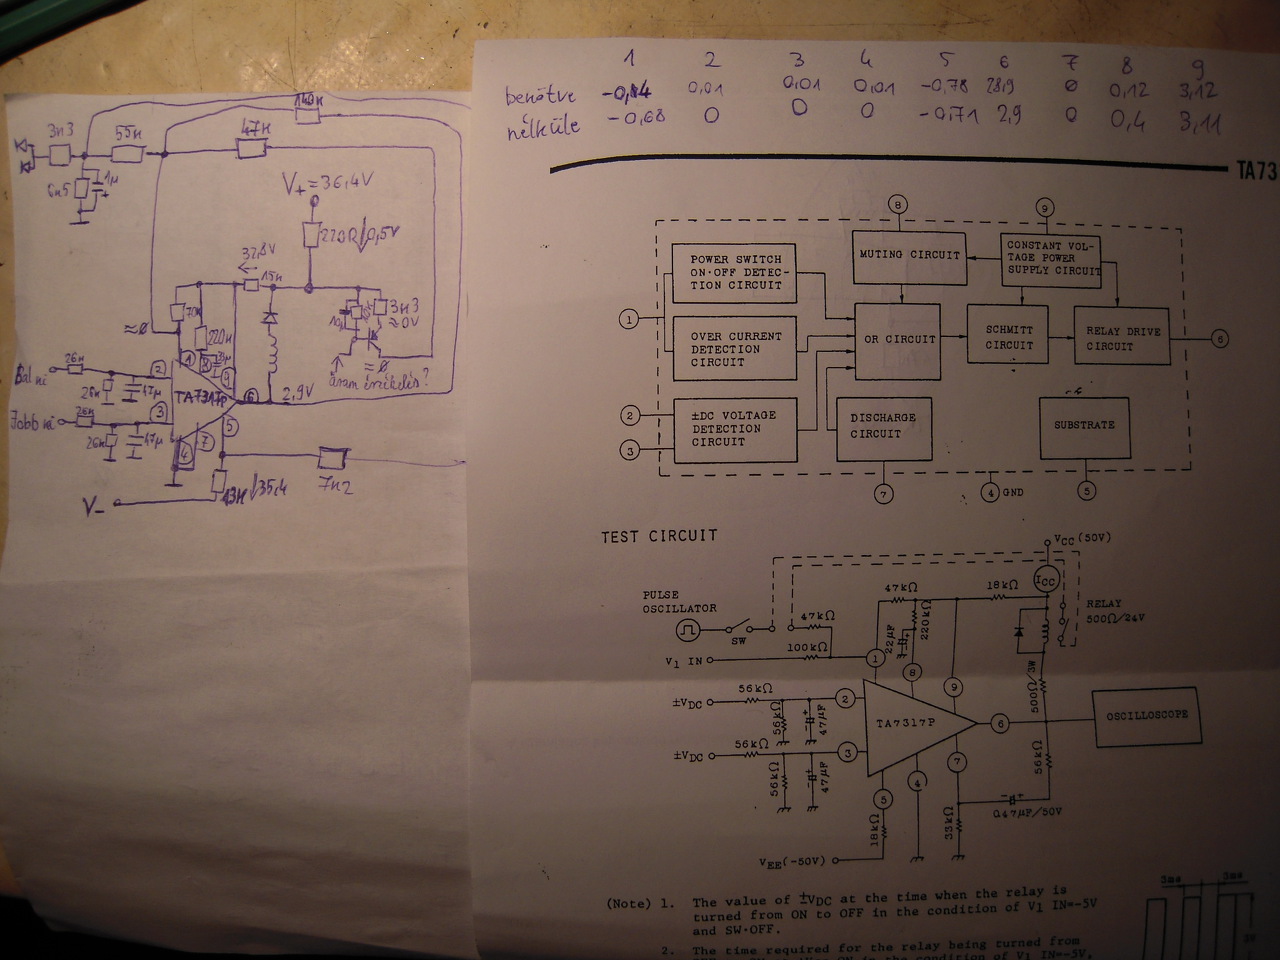 1 2 3 4 5 6 7 8 9
benötve -0,14 0,01 0,01 0,01 -0,78 28,9 0 0,12 3,12
nélküle -0,68 0 0 0 -0,71 2,9 0 0,4 3,11
TA73
140k
3k3
55k
47k
6k5
1µ
+
V+ = 36,4V
220R
0,5V
32,8V
15k
3k3
≈0V
≈0
220k
≈0
áram érzékelés?
Bal ki
26k
26k
47µ
2
1
8
9
TA7317P
6
2,9V
Jobb ki
26k
26k
47µ
3
4
7
5
V-
13k
35,4
7k2
8
9
POWER SWITCH
ON·OFF DETEC-
TION CIRCUIT
MUTING CIRCUIT
CONSTANT VOL-
TAGE POWER
SUPPLY CIRCUIT
1
OVER CURRENT
DETECTION
CIRCUIT
OR CIRCUIT
SCHMITT
CIRCUIT
RELAY DRIVE
CIRCUIT
6
2
3
±DC VOLTAGE
DETECTION
CIRCUIT
DISCHARGE
CIRCUIT
SUBSTRATE
7
4 GND
5
TEST CIRCUIT
VCC (50V)
ICC
PULSE
OSCILLATOR
SW
47kΩ
47kΩ
18kΩ
RELAY
500Ω/24V
220kΩ
22µF
V1 IN
100kΩ
1
8
9
500Ω/3W
±VDC
56kΩ
56kΩ
47µF
2
TA7317P
6
OSCILLOSCOPE
±VDC
56kΩ
56kΩ
47µF
3
5
4
7
56kΩ
18kΩ
33kΩ
0.47µF/50V
VEE(-50V)
(Note) 1. The value of ±VDC at the time when the relay is
turned from ON to OFF in the condition of V1 IN=-5V
and SW·OFF.
2. The time required for the relay being turned from
3ms
3ms